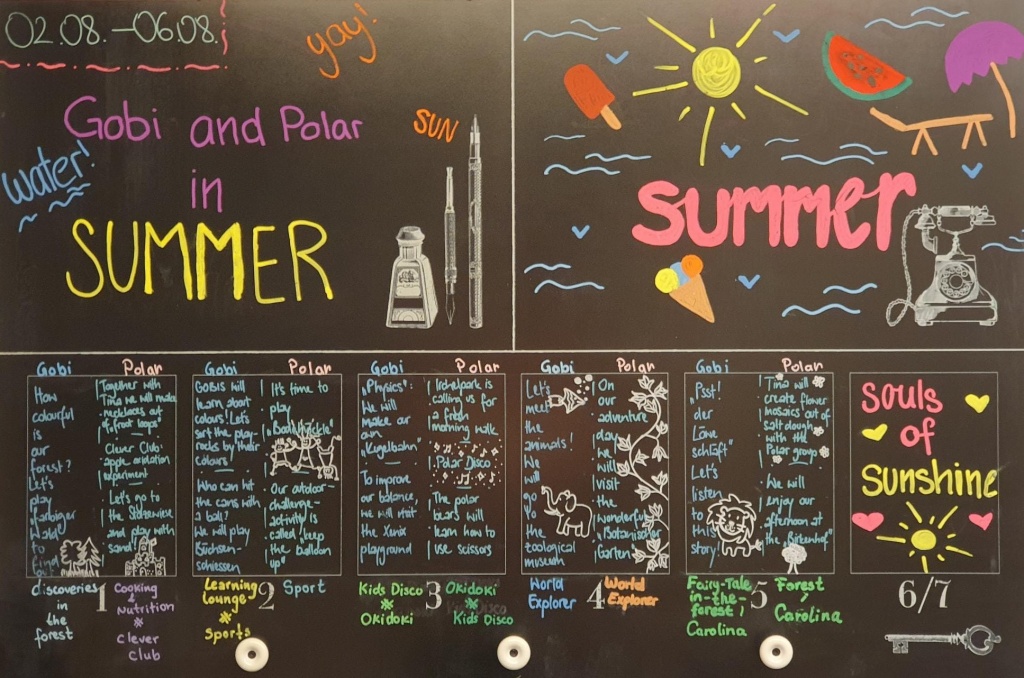 02.08.-06.08.
yay!
Gobi and Polar
in
SUMMER
water!
SUN
summer
Gobi
How
colourful
is
our
forest?
Let's
play
"farbiger
Wald"
to
find
Polar
Together with
Tina we will make
necklaces out
of "froot loops"
Clever Club:
apple-oxidation
experiment
Let's go to
the
and play with
sand
discoveries
in
the
forest
1
Cooking
&
Nutrition
*
Clever
Club
Gobi
GOBIS will
learn about
colours! Let's
sort the play-
racks by their
colours
Who can hit
the cans with
a ball?
We will play
Büchsen-
schiessen
Polar
It's time to
play
Our outdoor-
challenge-
activity is
called "keep
the balloon
up"
Learning
lounge
*
Sports
2
Sport
Gobi
"Physics":
We will
make our
own
"Kugelbahn"
To improve
our balance,
we will visit
the Xenix
playground
Polar
Irchelpark is
calling us for
a fresh
morning walk
Polar Disco
The polar
bears will
learn how to
use scissors
Kids Disco
*
Okidoki
3
Okidoki
*
Kids Disco
Gobi
Let's
meet
the
animals!
We
will
go to
the
zoological
museum
Polar
On
our
adventure
day
we
will
visit
the
wonderful
"Botanischer
Garten"
World
Explorer
4
World
Explorer
Gobi
"Psst!
der
Löwe
schläft"
Let's
listen
to
this
story!
Polar
Tina will
create flower
mosaics out of
salt dough
with the
Polar group
We will
enjoy our
afternoon at
the "Birkenhof"
Fairy-Tale-
in-the-
forest /
Carolina
5
Forest
/
Carolina
souls
of
sunshine
6/7